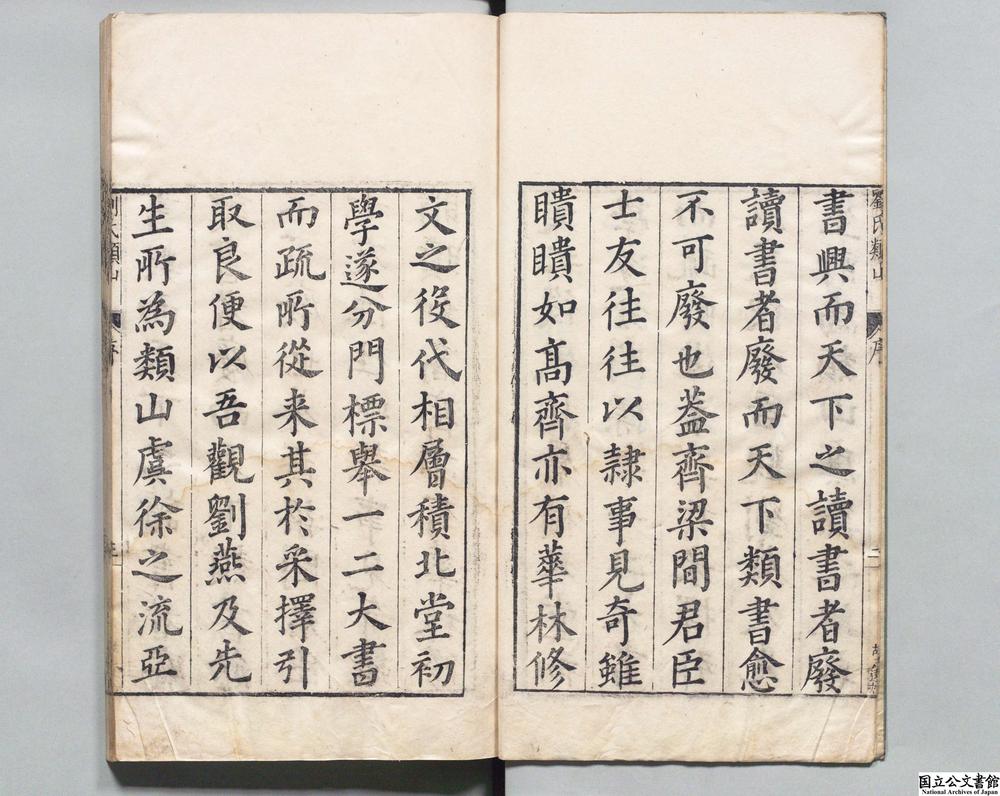 書興而天下之讀書者廢
讀書者廢而天下類書愈
不可廢也蓋齊梁間君臣
士友往往以隷事見奇雖
瞶瞶如高齊亦有華林修
文之役代相層積北堂初
學遂分門標舉一二大書
而疏所從来其於采擇引
取良便以吾觀劉燕及先
生所為類山虞徐之流亞
劉氏類山
序
二
劉氏類山
序
三
国立公文書館
National Archives of Japan